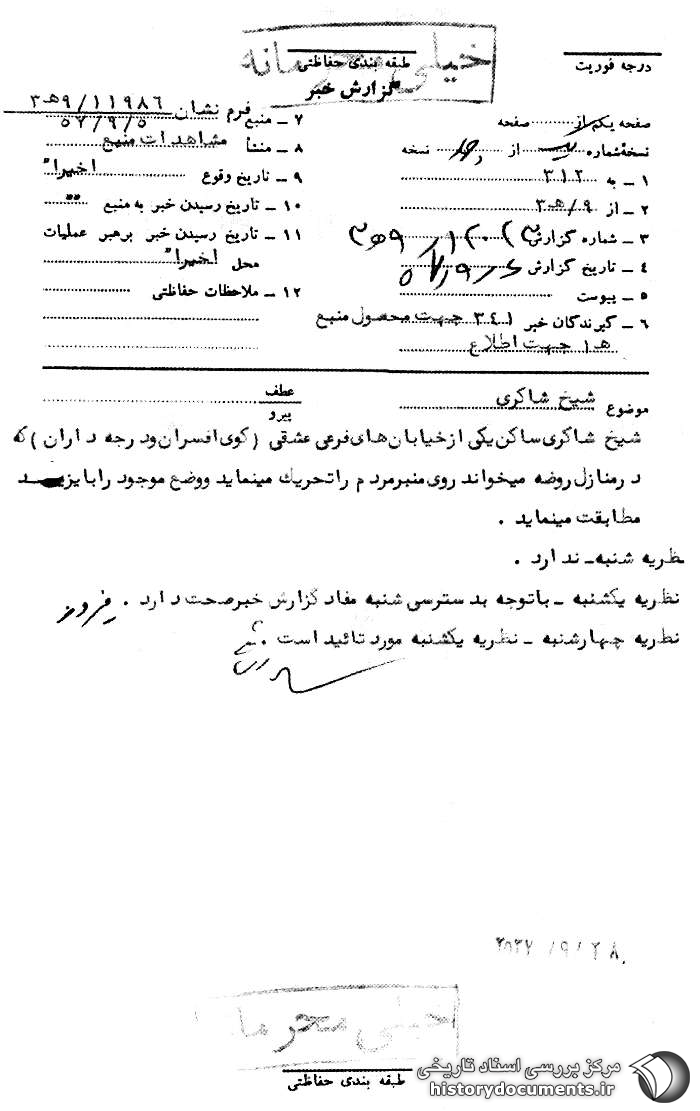 خیلی محرمانه
درجه فوریت
طبقه بندی حفاظتی
گزارش خبر
صفحه یکم از صفحه
نسخهٔ شماره یک از چهار نسخه
۱ ـ به ۳۱۲
۲ ـ از ۹/هـ۳
۳ ـ شماره گزارش
۴ ـ تاریخ گزارش
۵ ـ پیوست
۶ ـ گیرندگان خبر ۳۴۱ جهت محصول منبع
هـ۱ جهت اطلاع
۷ ـ منبع فرم نشان ۱۱۹۸۶/۹هـ۳
۵۷/۹/۵
۸ ـ منشأ مشاهدات منبع
۹ ـ تاریخ وقوع اخیرا"
۱۰ ـ تاریخ رسیدن خبر به منبع "
۱۱ ـ تاریخ رسیدن خبر برهبر عملیات
محل اخیرا"
۱۲ ـ ملاحظات حفاظتی
موضوع شیخ شاکری
عطف
پیرو
شیخ شاکری ساکن یکی از خیابان‌های فرعی عشقی (کوی افسران و درجه داران) که
در منازل روضه میخواند روی منبر مردم را تحریك مینماید و وضع موجود را با یزید
مطابقت مینماید .
نظریه شنبه ـ ندارد .
نظریه یکشنبه ـ با توجه بدسترسی شنبه مفاد گزارش خبر صحت دارد . فیروز
نظریه چهارشنبه ـ نظریه یکشنبه مورد تائید است .
۲۵۳۷/۹/۲۸
خیلی محرمانه
طبقه بندی حفاظتی
مرکز بررسی اسناد تاریخی
historydocuments.ir